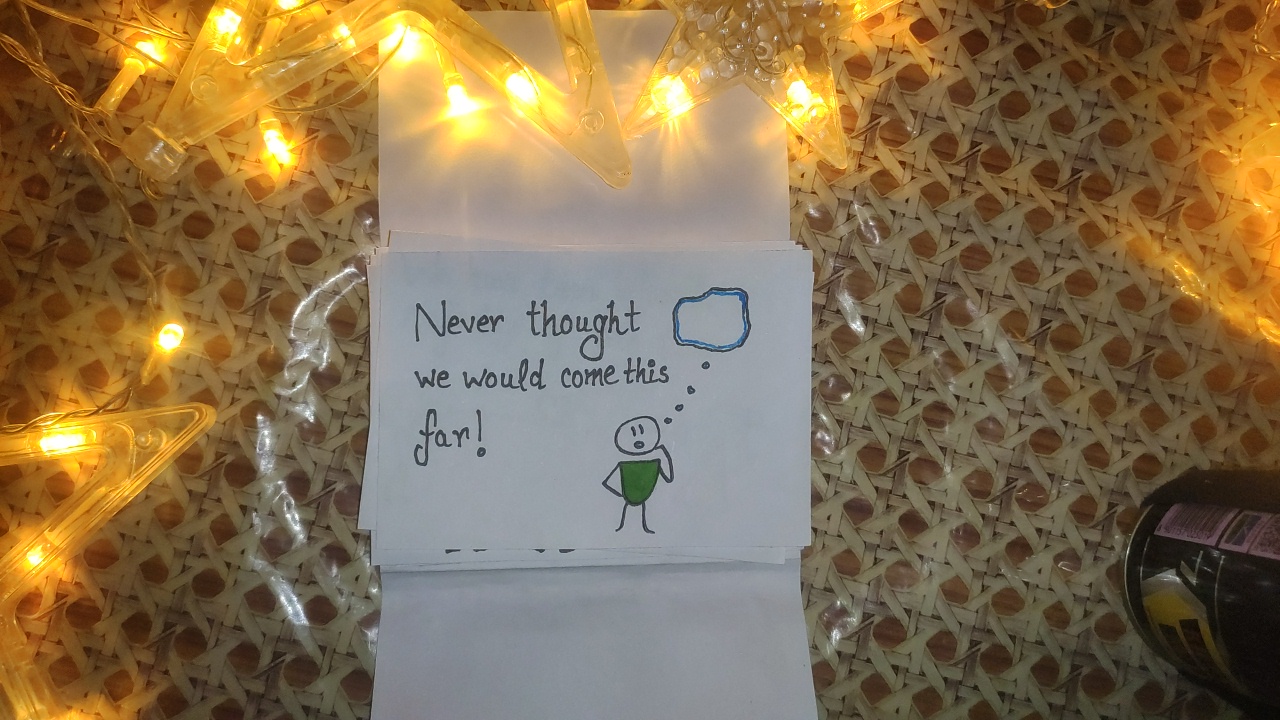 Never thought
we would come this
far!